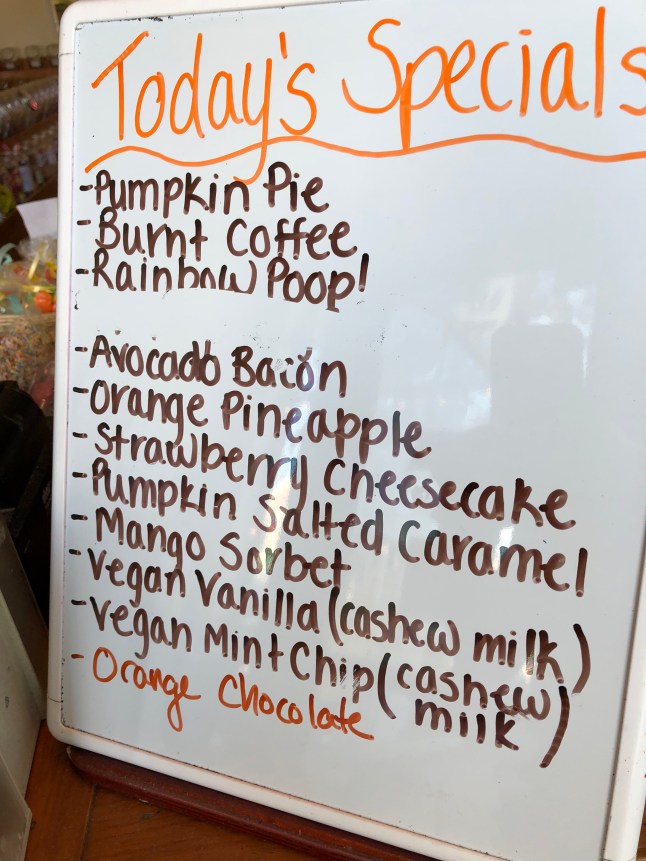 Today's Specials
-Pumpkin Pie
-Burnt Coffee
-Rainbow Poop!
-Avocado Bacon
-Orange Pineapple
-Strawberry Cheesecake
-Pumpkin Salted Caramel
-Mango Sorbet
-Vegan Vanilla (cashew milk)
-Vegan Mint Chip (cashew
milk)
-Orange Chocolate